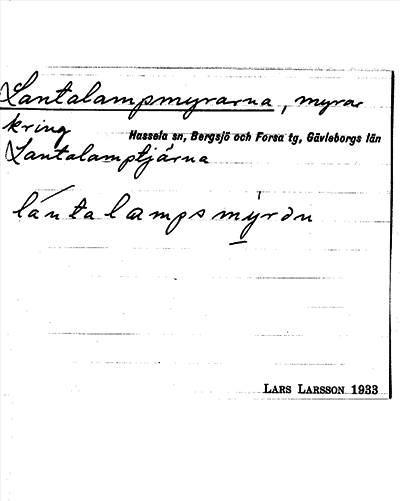 Lantalampmyrarna, myrar
kring
Hassela sn, Bergsjö och Forsa tg, Gävleborgs län
Lantalamptjärna
lántalampsmỳrən
LARS LARSSON 1933